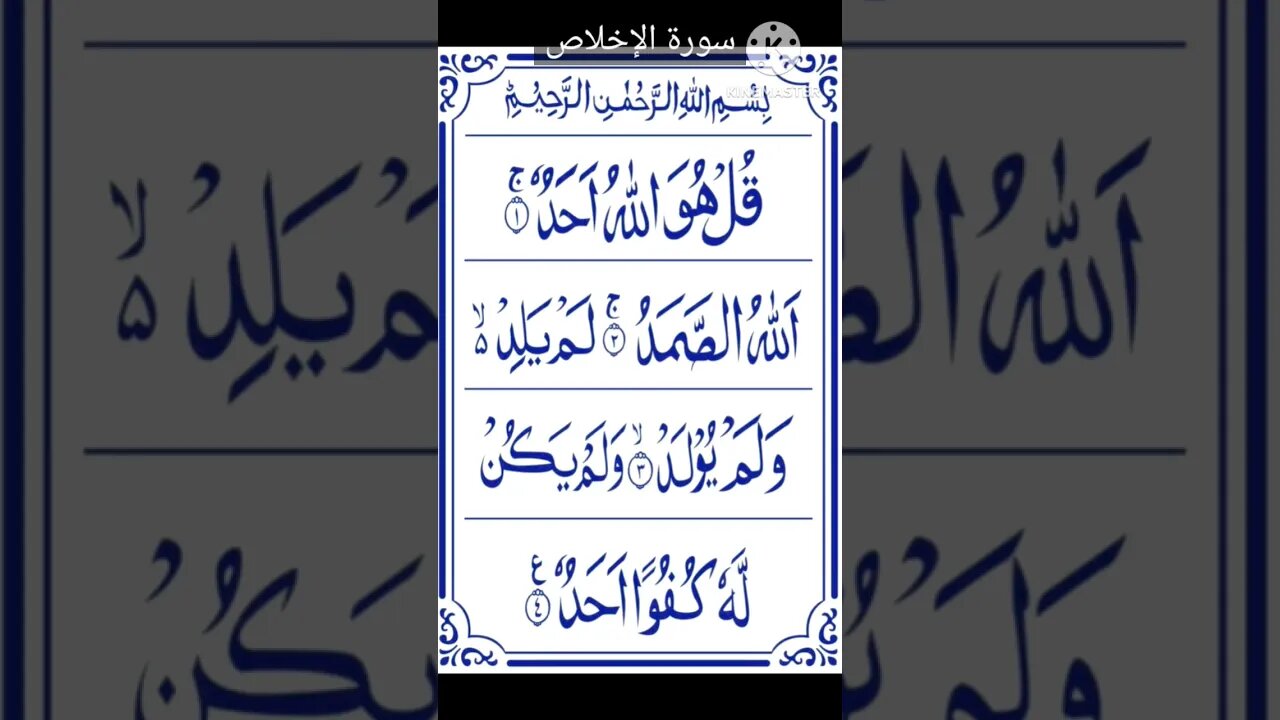 سورة الإخلاص
KINEMASTER
بِسْمِ اللّٰهِ الرَّحْمٰنِ الرَّحِيْمِ
قُلْ هُوَ اللّٰهُ اَحَدٌ ۚ ۝١
اَللّٰهُ الصَّمَدُ ۚ ۝٢ لَمْ يَلِدْ ۙ۵
وَلَمْ يُوْلَدْ ۙ ۝٣ وَلَمْ يَكُنْ
لَّهٗ كُفُوًا اَحَدٌ ۝٤ ع